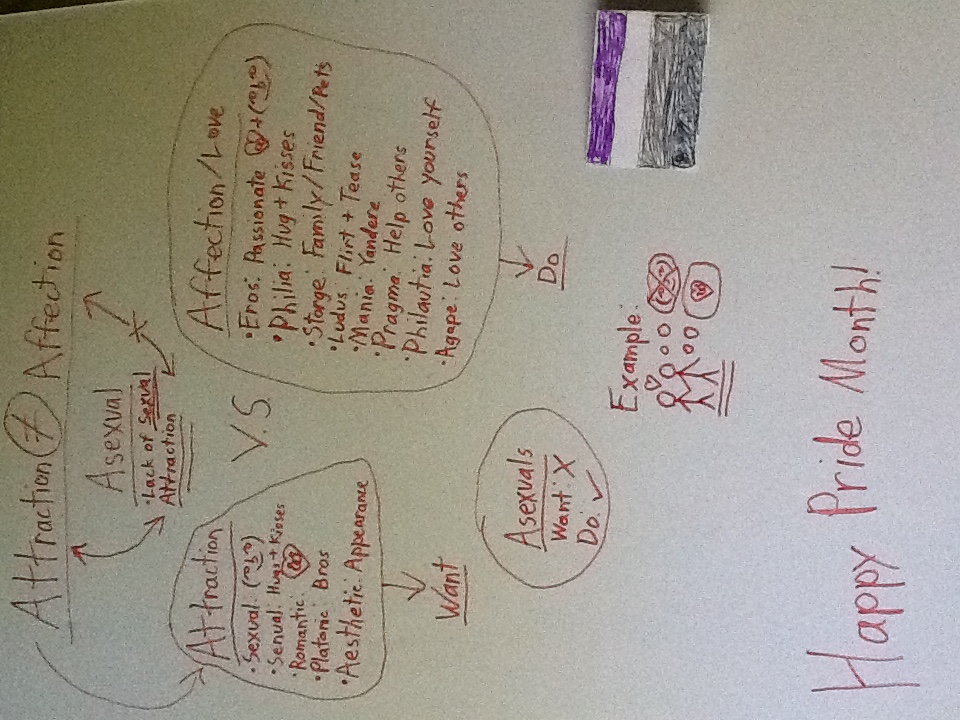 Attraction ≠ Affection
Asexual
• Lack of Sexual
Attraction
Attraction
• Sexual: ( ͡° ͜ʖ ͡°)
• Senual: Hugs + Kisses
• Romantic:
• Platonic: Bros
• Aesthetic: Appearance
Want
V.S.
Affection/Love
• Eros: Passionate + ( ͡° ͜ʖ ͡°)
• Philia: Hug + Kisses
• Storge: Family/Friend/Pets
• Ludus: Flirt + Tease
• Mania: Yandere
• Pragma: Help others
• Philautia: Love yourself
• Agape: Love others
Do
Asexuals
Want: X
Do: ✓
Example:
Happy Pride Month!